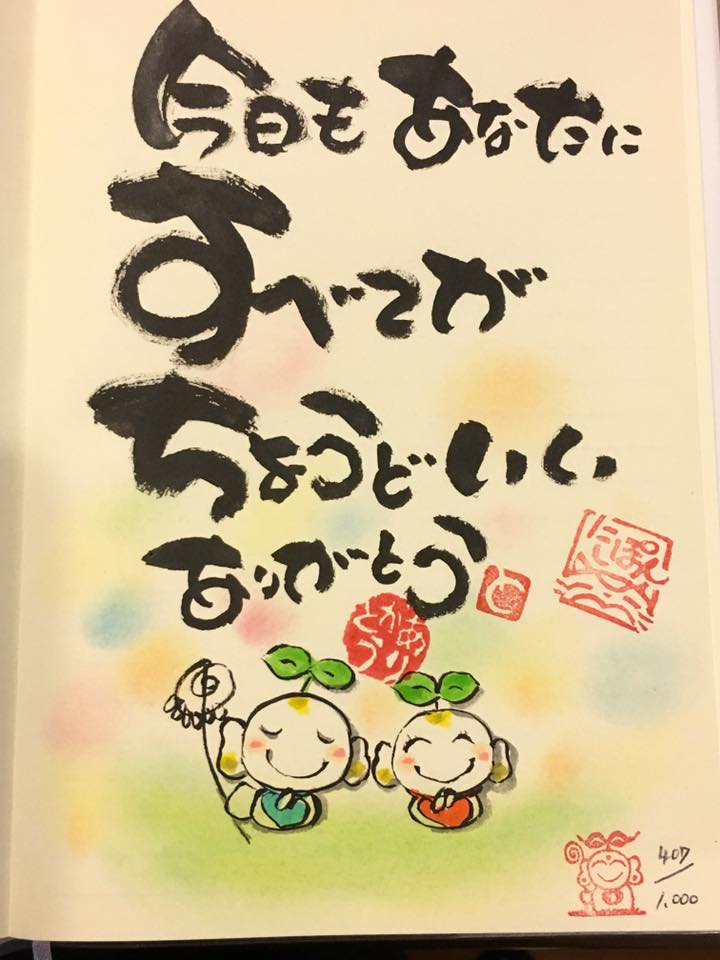 今日も あなたに
すべてが
ちょうどいい
ありがとう
にっぽん
407
1.000